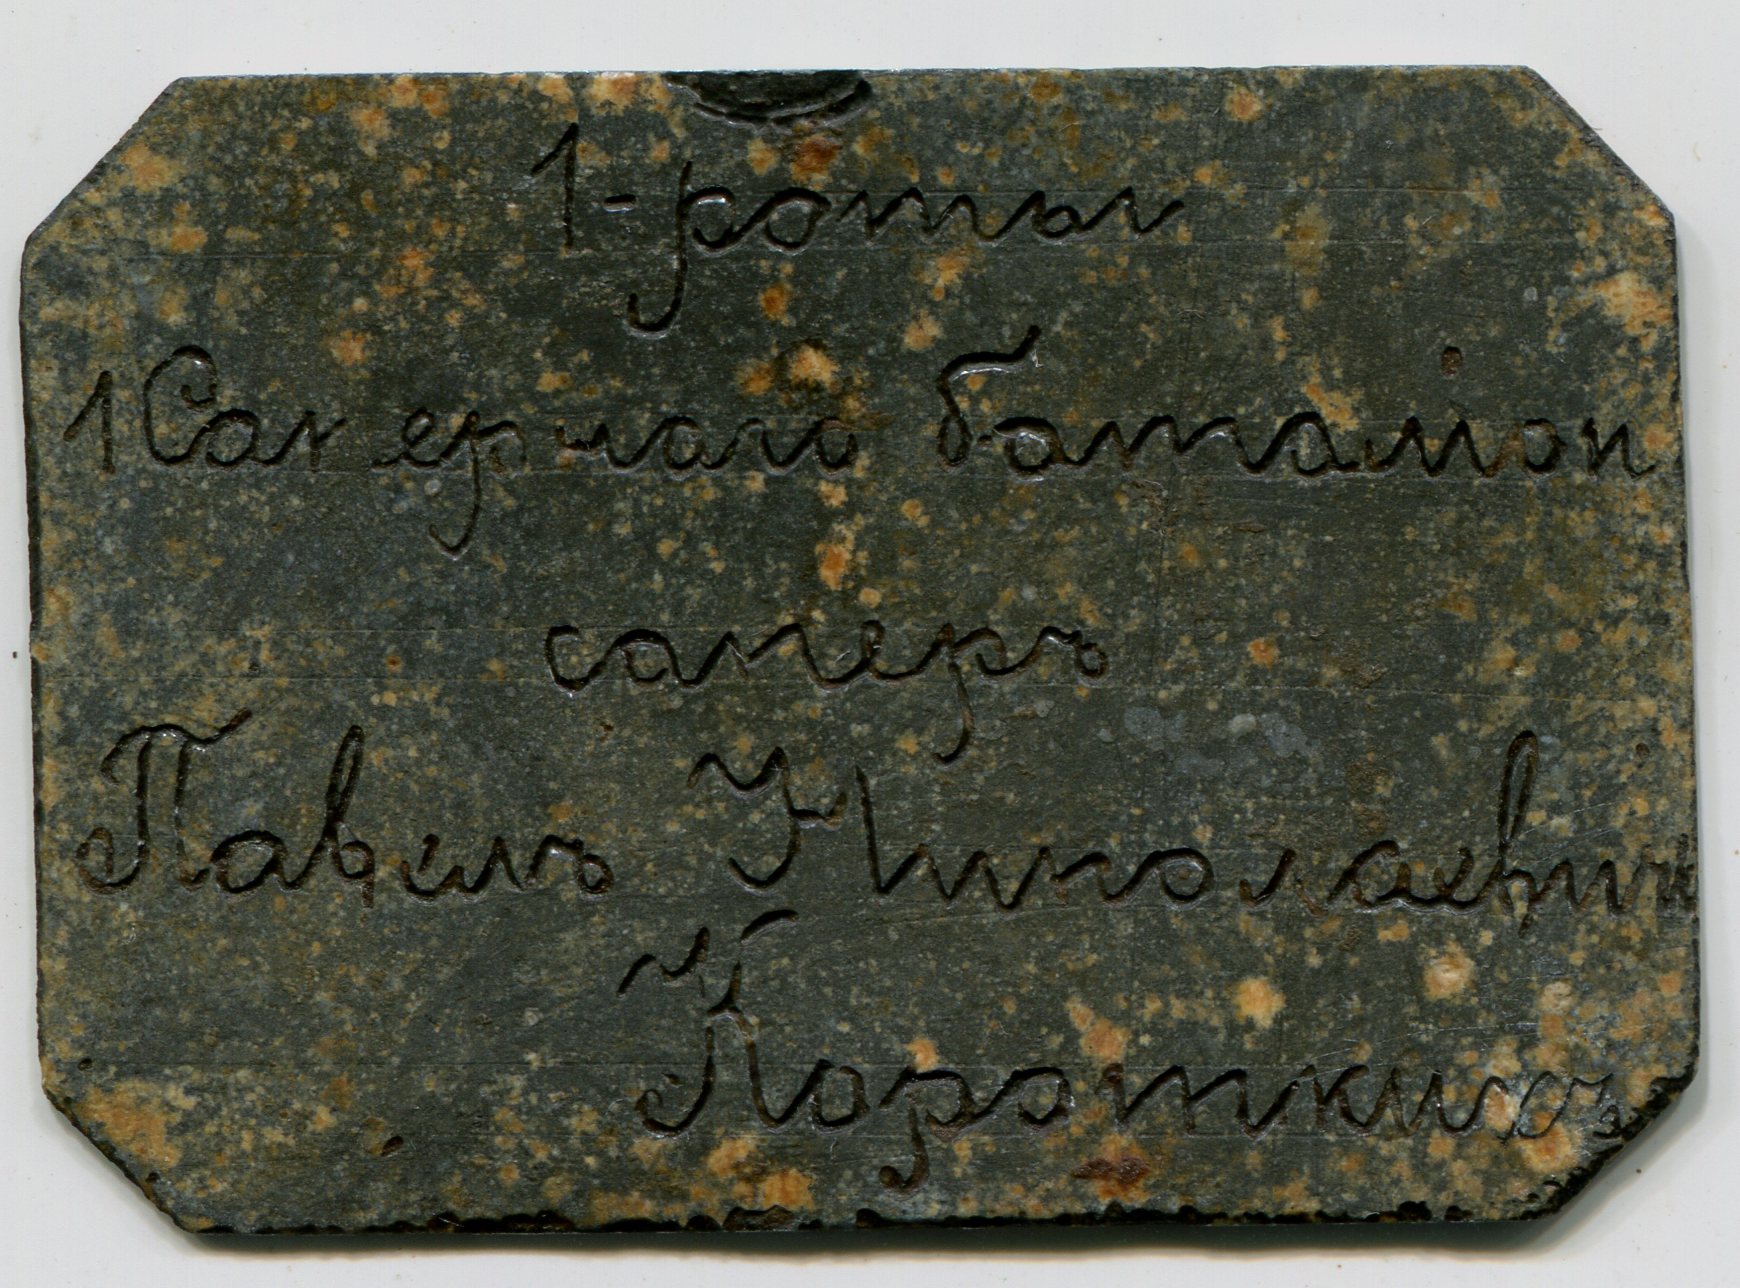 1-роты
1 Саперного баталион
саперъ
Павелъ Николаевич
Короткихъ